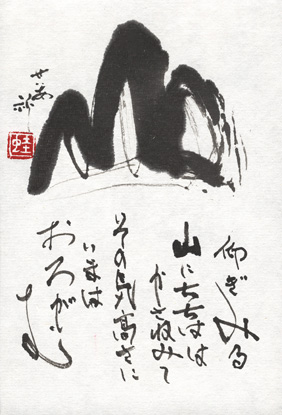 山
蛙
仰ぎみる
山にちちはは
かさねみて
その気高さに
いまは
おろが